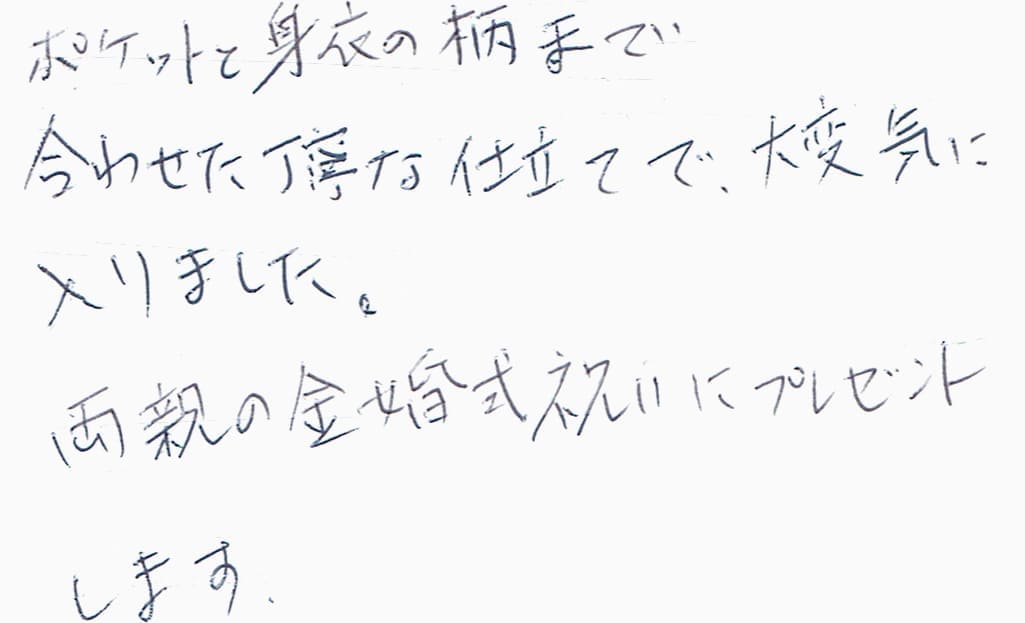 ポケットと身衣の柄まで
合わせた丁寧な仕立てで、大変気に
入りました。
両親の金婚式祝いにプレゼント
します.